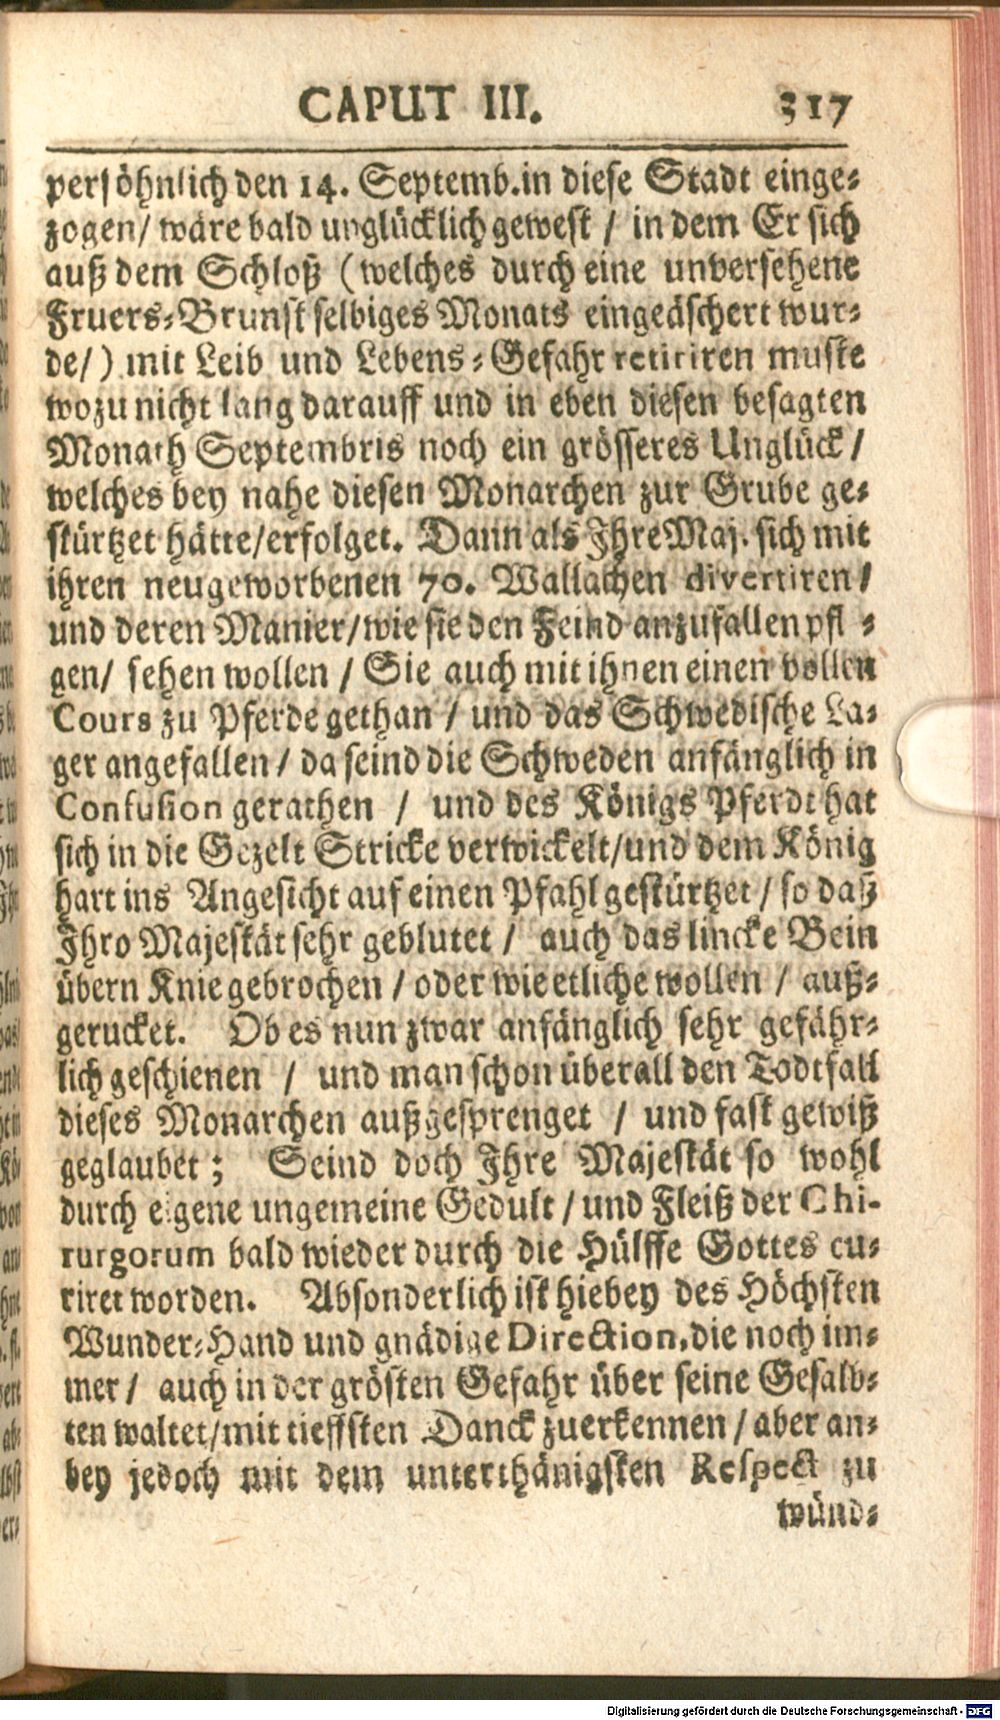 CAPUT III. 317
persöhnlich den 14. Septemb. in diese Stadt einge-
zogen/ wäre bald unglücklich gewest / in dem Er sich
auß dem Schloß (welches durch eine unversehene
Fruers-Brunst selbiges Monats eingeäschert wur-
de/) mit Leib und Lebens-Gefahr retiriren muste
wozu nicht lang darauff und in eben diesen besagten
Monath Septembris noch ein grösseres Unglück/
welches bey nahe diesen Monarchen zur Grube ge-
stürtzet hätte/erfolget. Dann als Ihre Maj. sich mit
ihren neugeworbenen 70. Wallachen divertiren/
und deren Manier/wie sie den Feind anzufallen pfl -
gen/ sehen wollen / Sie auch mit ihnen einen vollen
Cours zu Pferde gethan / und das Schwedische La-
ger angefallen / da seind die Schweden anfänglich in
Confusion gerathen / und des Königs Pferdt hat
sich in die Gezelt Stricke verwickelt/und dem König
hart ins Angesicht auf einen Pfahl gestürtzet / so daß
Ihro Majestät sehr geblutet / auch das lincke Bein
übern Knie gebrochen / oder wie etliche wollen / auß-
gerucket. Ob es nun zwar anfänglich sehr gefähr-
lich geschienen / und man schon überall den Todtfall
dieses Monarchen außgesprenget / und fast gewiß
geglaubet; Seind doch Ihre Majestät so wohl
durch eigene ungemeine Gedult / und Fleiß der Chi-
rurgorum bald wieder durch die Hülffe Gottes cu-
riret worden. Absonderlich ist hiebey des Höchsten
Wunder-Hand und gnädige Direction, die noch im-
mer / auch in der grösten Gefahr über seine Gesalb-
ten waltet/mit tieffsten Danck zuerkennen / aber an-
bey jedoch mit dem unterthänigsten Respect zu
wünd-
Digitalisierung gefördert durch die Deutsche Forschungsgemeinschaft - DFG